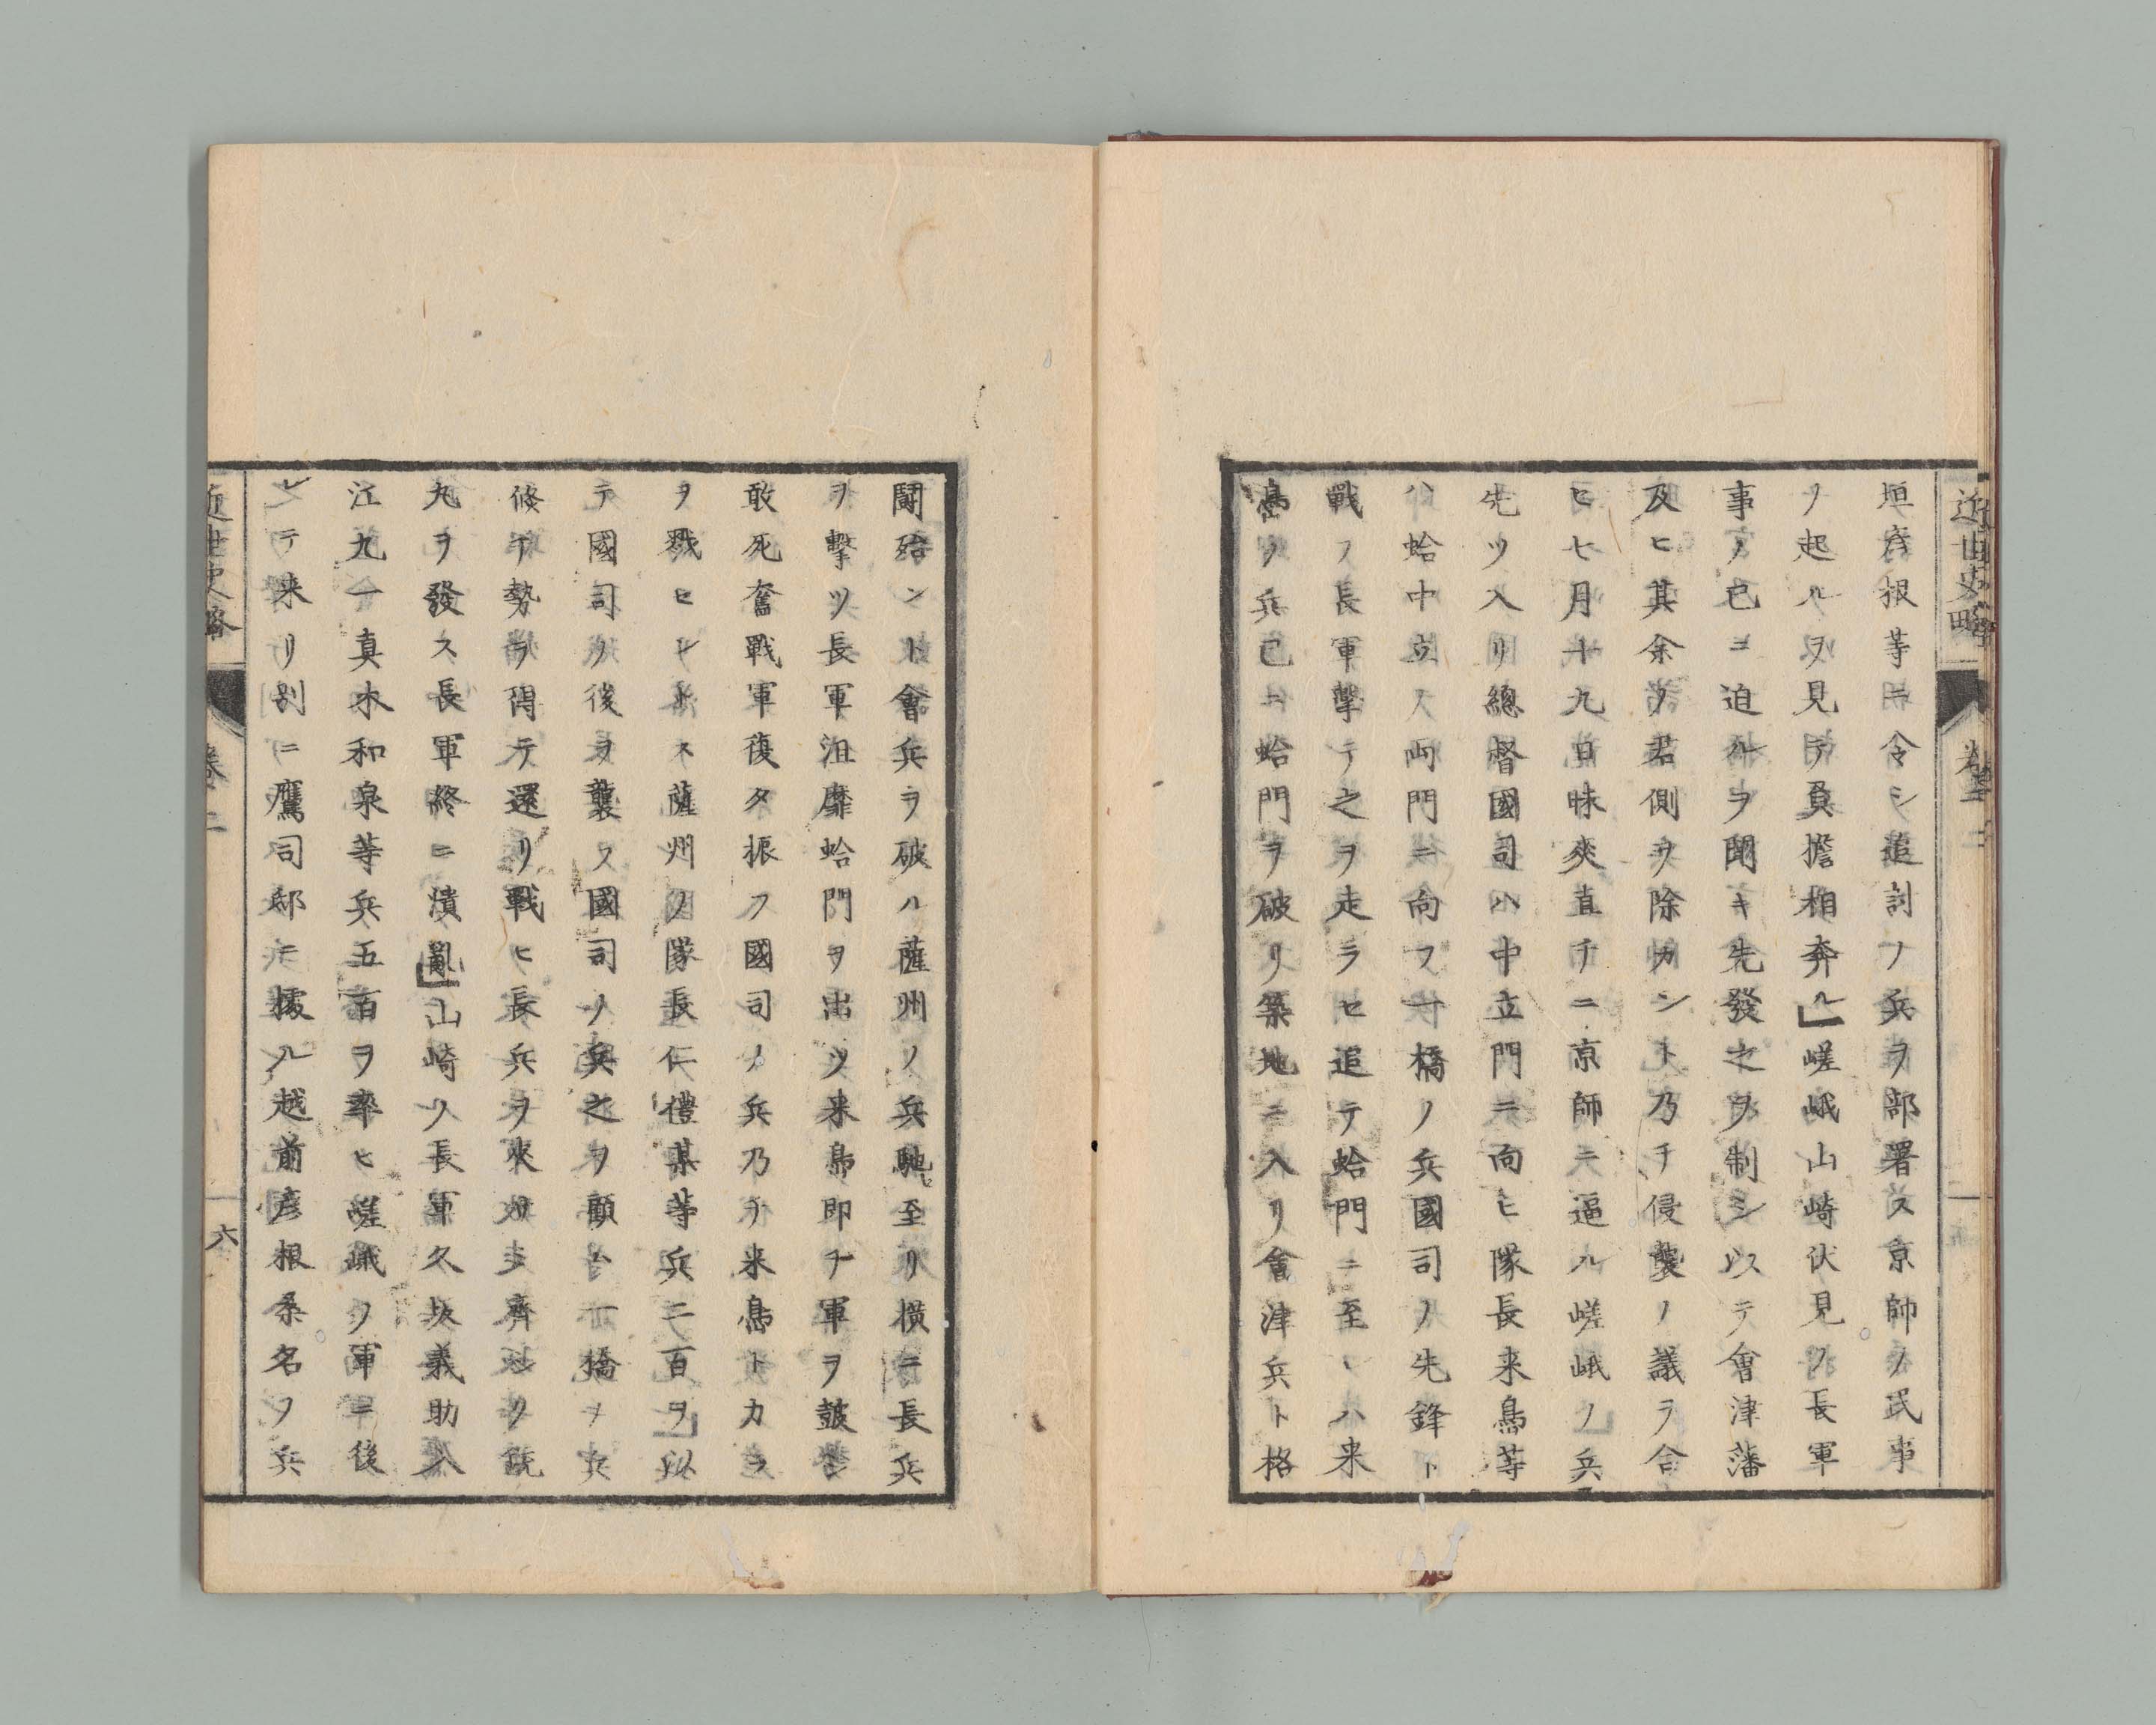 近世史略 卷二
垣彦根等ニ令シ追討ノ兵ヲ部署ス京師ノ民事
ノ起ルヲ見テ負擔相奔ル」嵯峨山崎伏見ノ長軍
事ノ已ニ迫ルヲ聞キ先發之ヲ制シ以テ會津藩
及ヒ其余ノ君側ヲ除カント乃チ侵襲ノ議ヲ合
セ七月十九日昧爽直チニ京師ニ逼ル嵯峨ノ兵
先ツ入リ總督國司ハ中立門ニ向ヒ隊長来島等
ハ蛤中立ス両門ニ向フ一橋ノ兵國司ノ先鋒ト
戰フ長軍擊テ之ヲ走ラセ追テ蛤門ニ至レハ来
島ノ兵已ニ蛤門ヲ破リ築地ニ入リ會津兵ト格
鬪殆ント會兵ヲ破ル薩州ノ兵馳至リ横ニ長兵
ヲ擊ツ長軍沮靡蛤門ヲ出ツ来島即チ軍ヲ鼓シ
敢死奮戰軍復タ振フ國司ノ兵乃チ来島ト力ヲ
ヲ戮ヒレトス薩州ノ隊長仁禮某等兵二百ヲ以
テ國司ノ後ヲ襲フ國司ノ兵之ヲ顧ム一橋ノ兵
倏チ勢ヲ得テ還リ戰ヒ長兵ヲ夾ミ齊シク銃
丸ヲ發ス長軍終ニ潰亂」山崎ノ長軍久坂義助入
江九一真木和泉等兵五百ヲ率ヒ嵯峨ノ軍ニ後
レテ来リ別ニ鷹司邸ニ據ル越前彦根桑名ノ兵
近世史略 卷二 十六